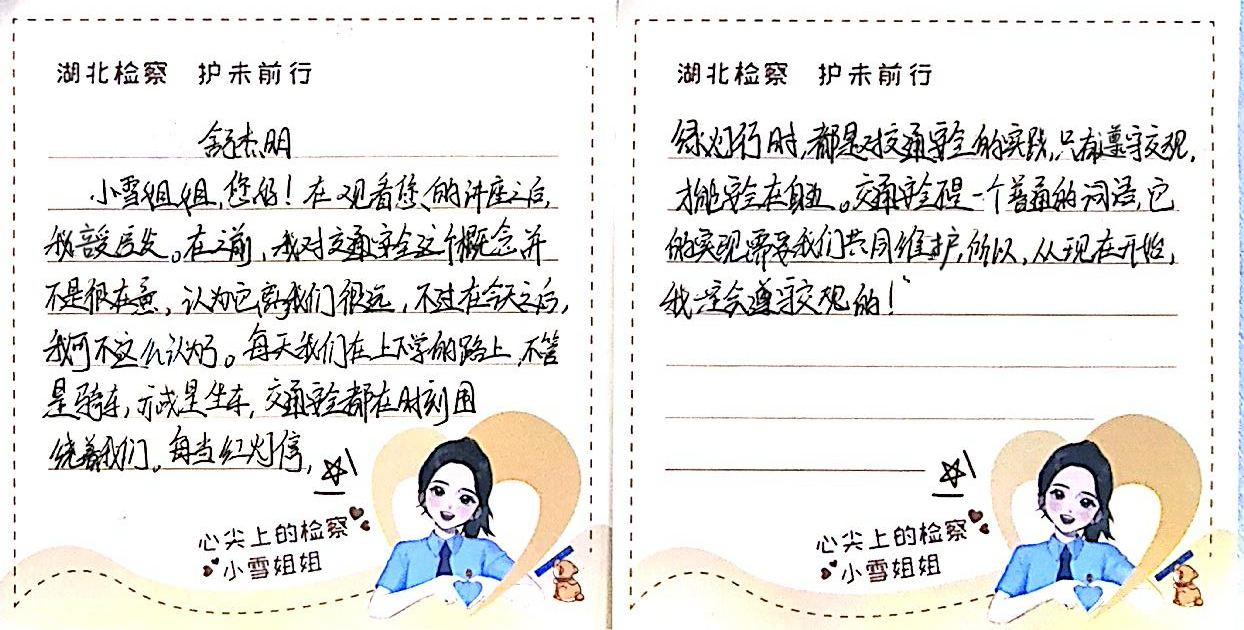 湖北检察 护未前行
舒杰明
小雪姐姐,您好!在观看您的讲座之后,
我深受启发。在之前,我对交通安全这个概念并
不是很在意,认为它离我们很远,不过在今天之后,
我可不这么认为了。每天我们在上下学的路上,不管
是骑车,亦或是坐车,交通安全都在时刻围
绕着我们。每当红灯停,
心尖上的检察
小雪姐姐
湖北检察 护未前行
绿灯行时,都是对交通安全的实践,只有遵守交规,
才能安全在身边。交通安全不是一个普通的词语,它
的实现需要我们共同维护,所以,从现在开始,
我一定会遵守交规的!
心尖上的检察
小雪姐姐